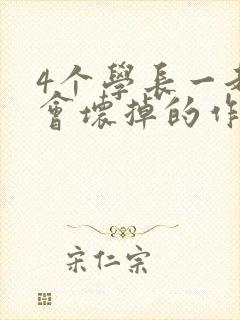 4个學長一起
會壞掉的作
宋仁宗